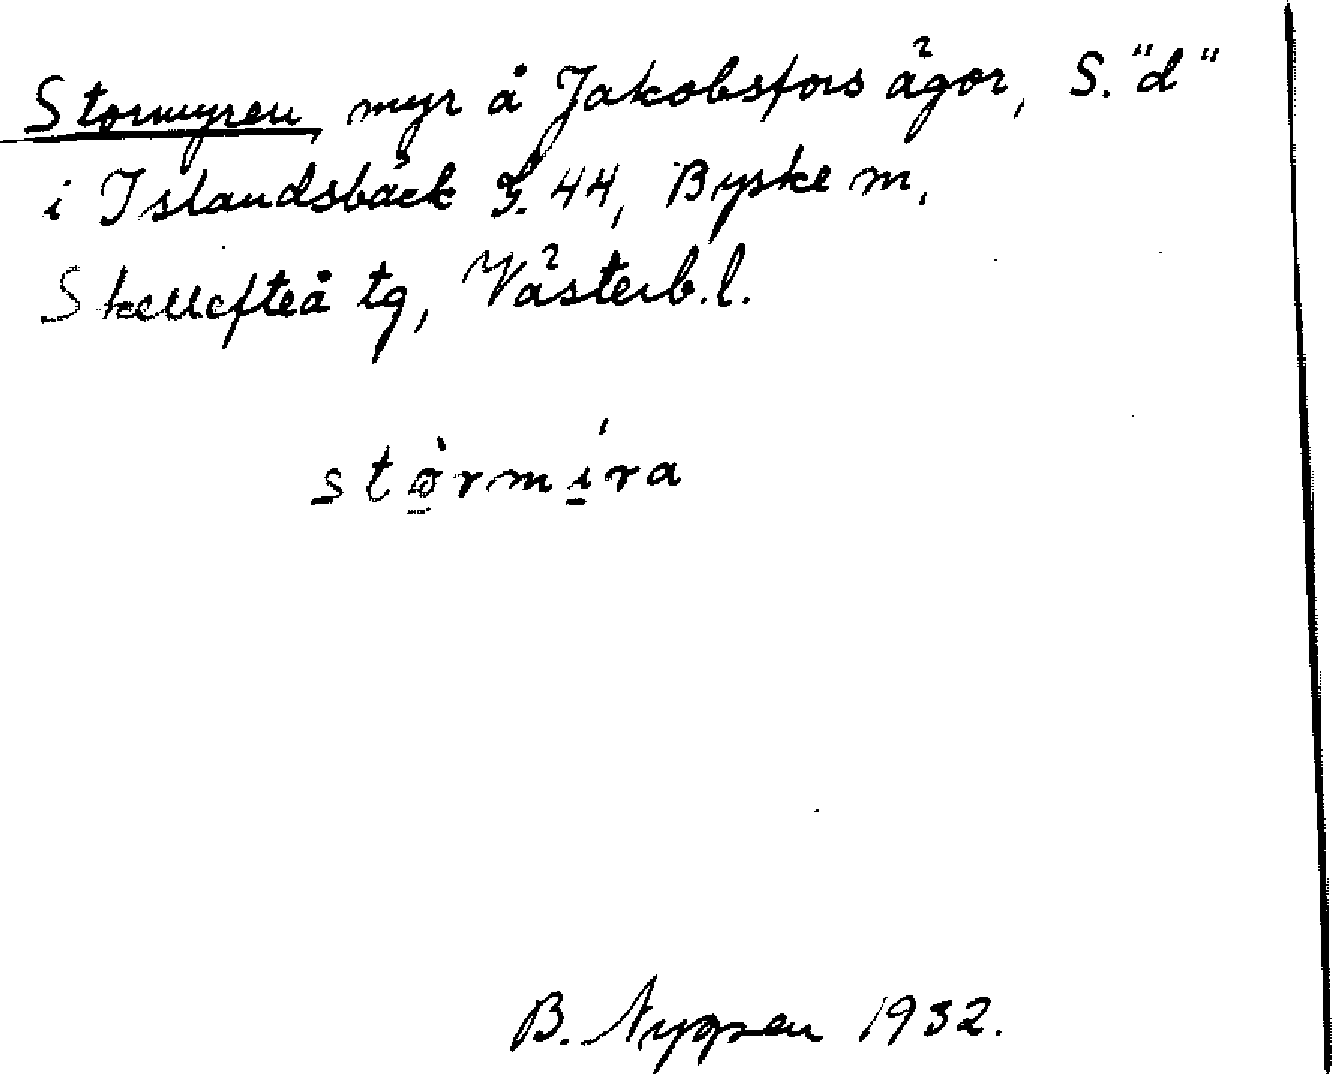 Stormyren, myr å Jakobsfors ägor, S. "d"
i Islandsbäck G. 44, Byske m,
Skellefteå tg, Västerb. l.
stòrmíra
B. Nygren 1932.